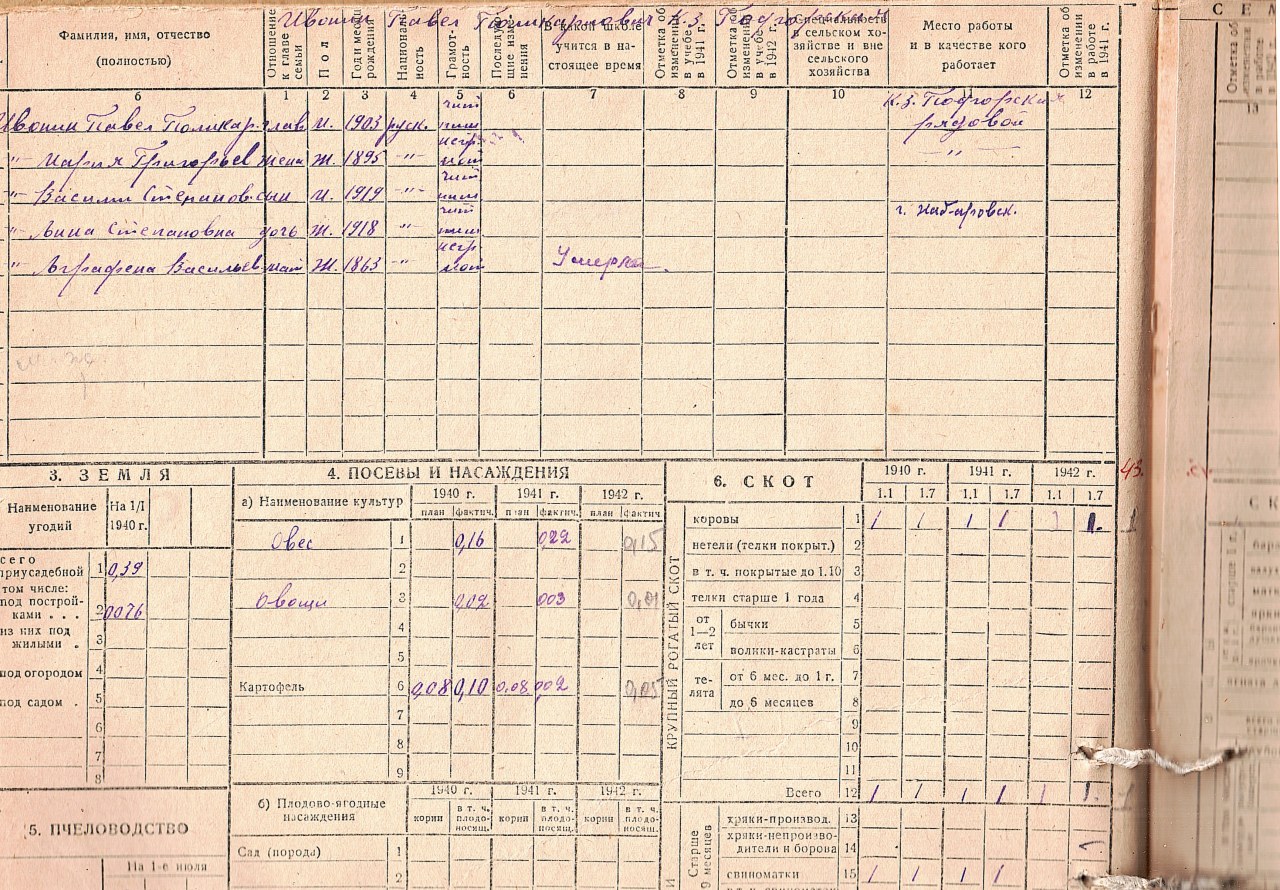 Ивонин Павел Поликарпович К.З. Подгорский
Фамилия, имя, отчество
(полностью)
Отношение к главе семьи
Пол
Год и месяц рождения
Националь- ность
Грамот- ность
Последую- щие изме- нения
В какой школе учится в на- стоящее время
Отметка об изменении в учебе в 1941 г.
Отметка об изменении в учебе в 1942 г.
Специальность в сельском хо- зяйстве и вне сельского хозяйства
Место работы и в качестве кого работает
Отметка об изменении в работе в 1941 г.
СЕМ
Отметка об
б 1 2 3 4 5 6 7 8 9 10 11 12 13
Ивонин Павел Поликар. глав м. 1903 руск. К.З. Подгорский рядовой
-"- Мария Григорьев жена ж. 1895 -"- негр -"-
-"- Василий Степанов. сын м. 1919 -"-
-"- Анна Степановна дочь ж. 1918 -"- г. Хабаровск.
-"- Аграфена Васильев мат ж. 1863 -"- негр Умерла.
3. ЗЕМЛЯ
Наименование угодий
На 1/I 1940 г.
сего приусадебной 1 0,39
том числе: под построй- ками . . . 2 0076
из них под жилыми . 3
под огородом 4
под садом . 5
6
7
8
5. ПЧЕЛОВОДСТВО
На 1-е июля
4. ПОСЕВЫ И НАСАЖДЕНИЯ
а) Наименование культур
1940 г. 1941 г. 1942 г.
план фактич. план фактич. план фактич
Овес 1 0,16 022 0,15
2
Овощи 3 0,02 003 0,01
4
5
Картофель 6 0,08 0,10 0,08 002 0,05
7
8
9
б) Плодово-ягодные насаждения
1940 г. 1941 г. 1942 г.
корни в т. ч. плодо- носящ. корни в т. ч. плодо- носящ. корни в т. ч. плодо- носящ.
Сад (порода) 1
2
6. СКОТ
1940 г. 1941 г. 1942 г.
1.1 1.7 1.1 1.7 1.1 1.7
КРУПНЫЙ РОГАТЫЙ СКОТ
коровы 1 1 1 1 1 1 1.
нетели (телки покрыт.) 2
в т. ч. покрытые до 1.10 3
телки старше 1 года 4
от 1—2 лет
бычки 5
волики-кастраты 6
те- лята
от 6 мес. до 1 г. 7
до 6 месяцев 8
9
10
11
Всего 12 1 1 1 1 1 1.
Старше 9 месяцев
хряки-производ. 13
хряки-непроизво- дители и борова 14
свиноматки 15 1 1 1 1
43.